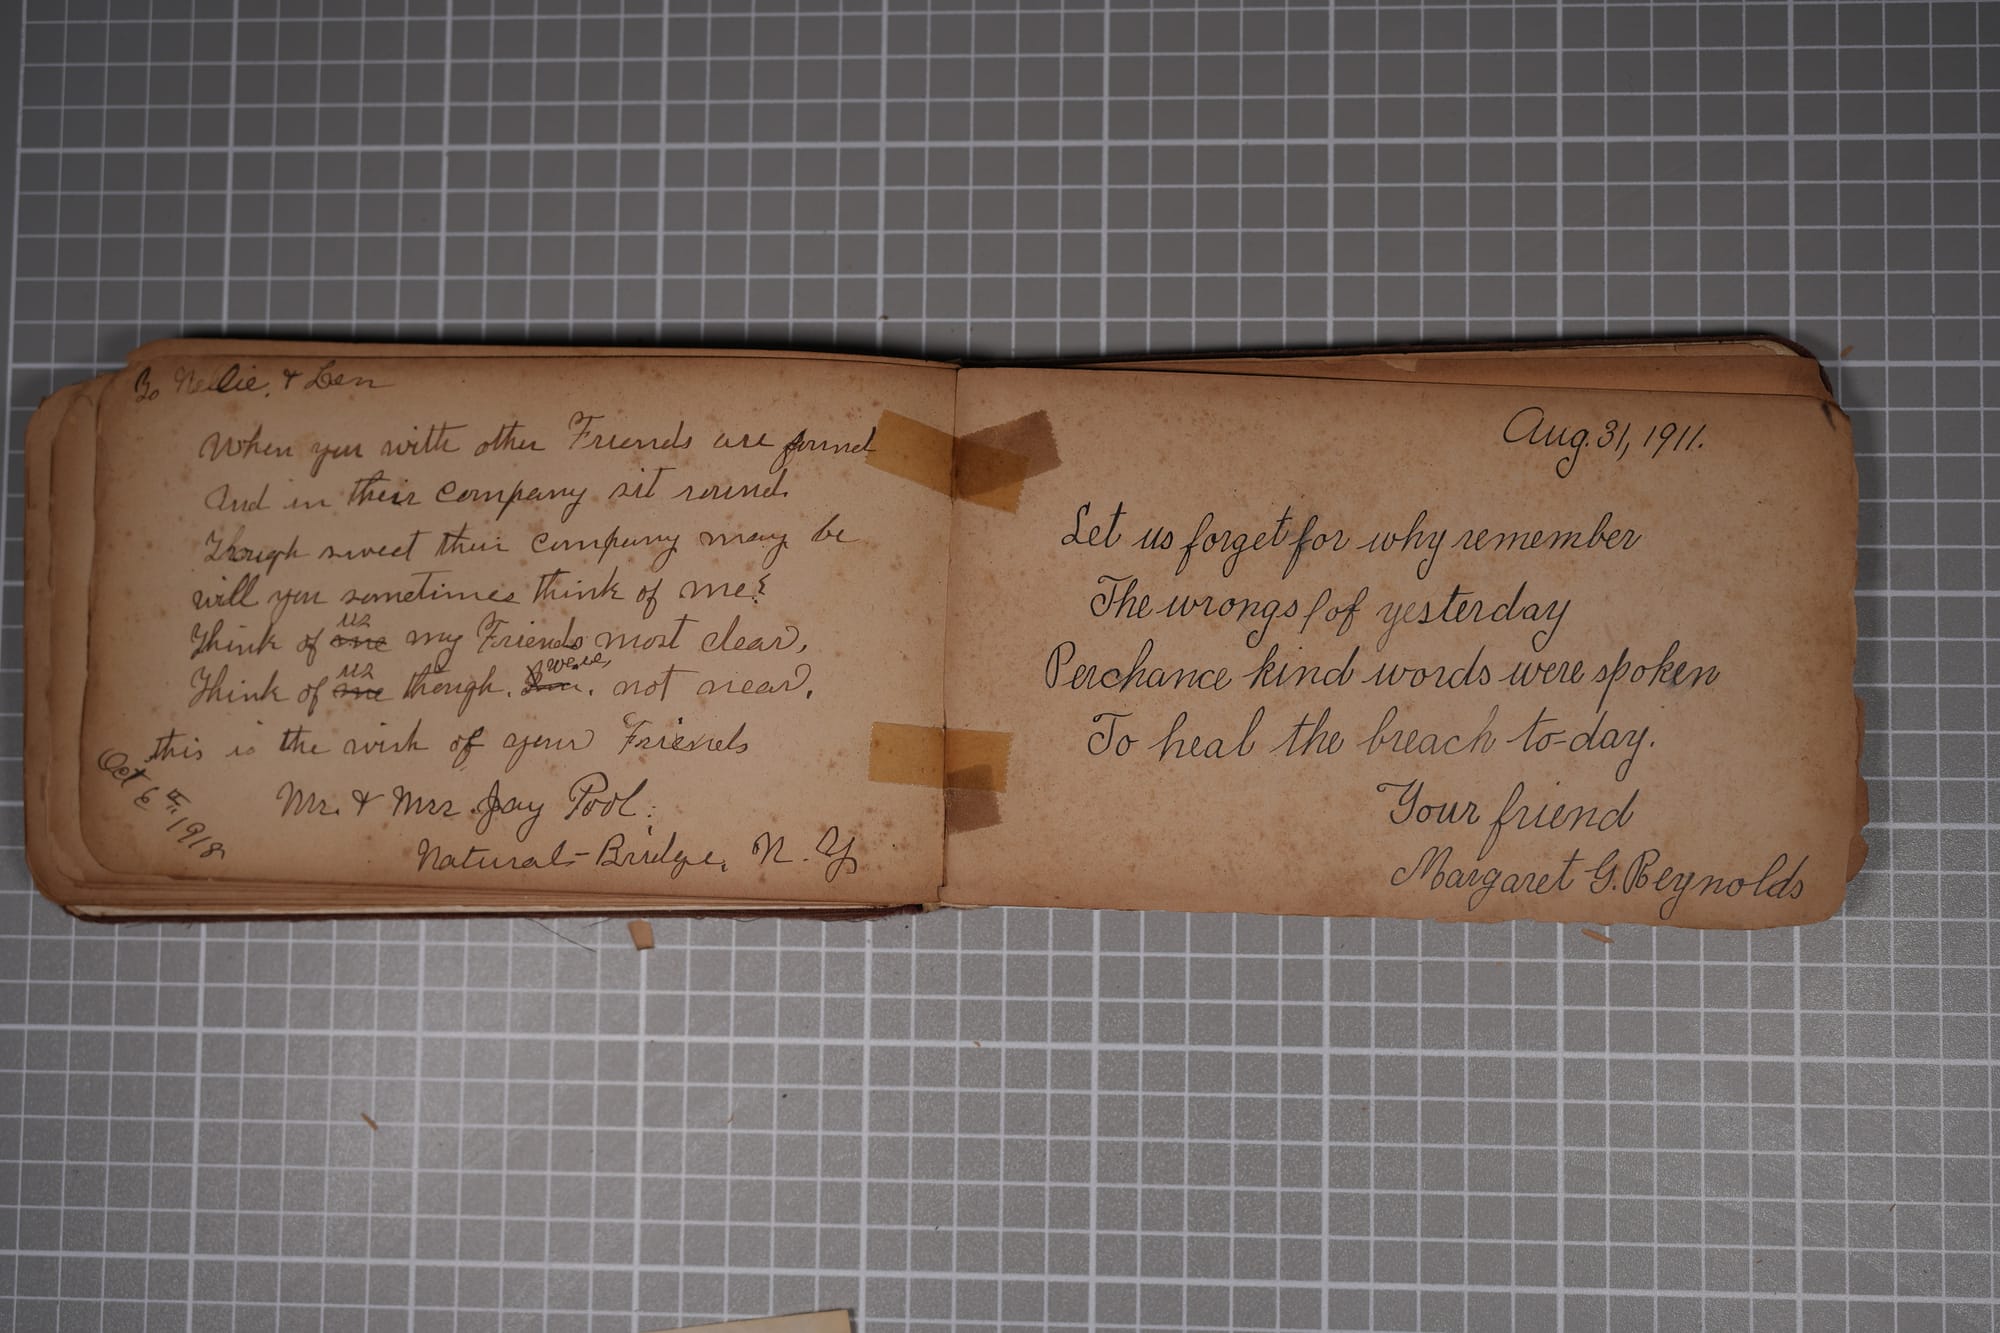 To Nellie. & Len
When you with other Friends are found
And in their company sit round.
Though sweet their company may be
will you sometimes think of me?
us
Think of me my Friends most dear,
us we're,
Think of me though. I'm. not near,
this is the wish of your Friends
Mr. & Mrs. Jay Pool.
Natural-Bridge, N. Y.
Oct 6th 1918
Aug. 31, 1911.
Let us forget for why remember
The wrongs of yesterday
Perchance kind words were spoken
To heal the breach to-day.
Your friend
Margaret G. Reynolds